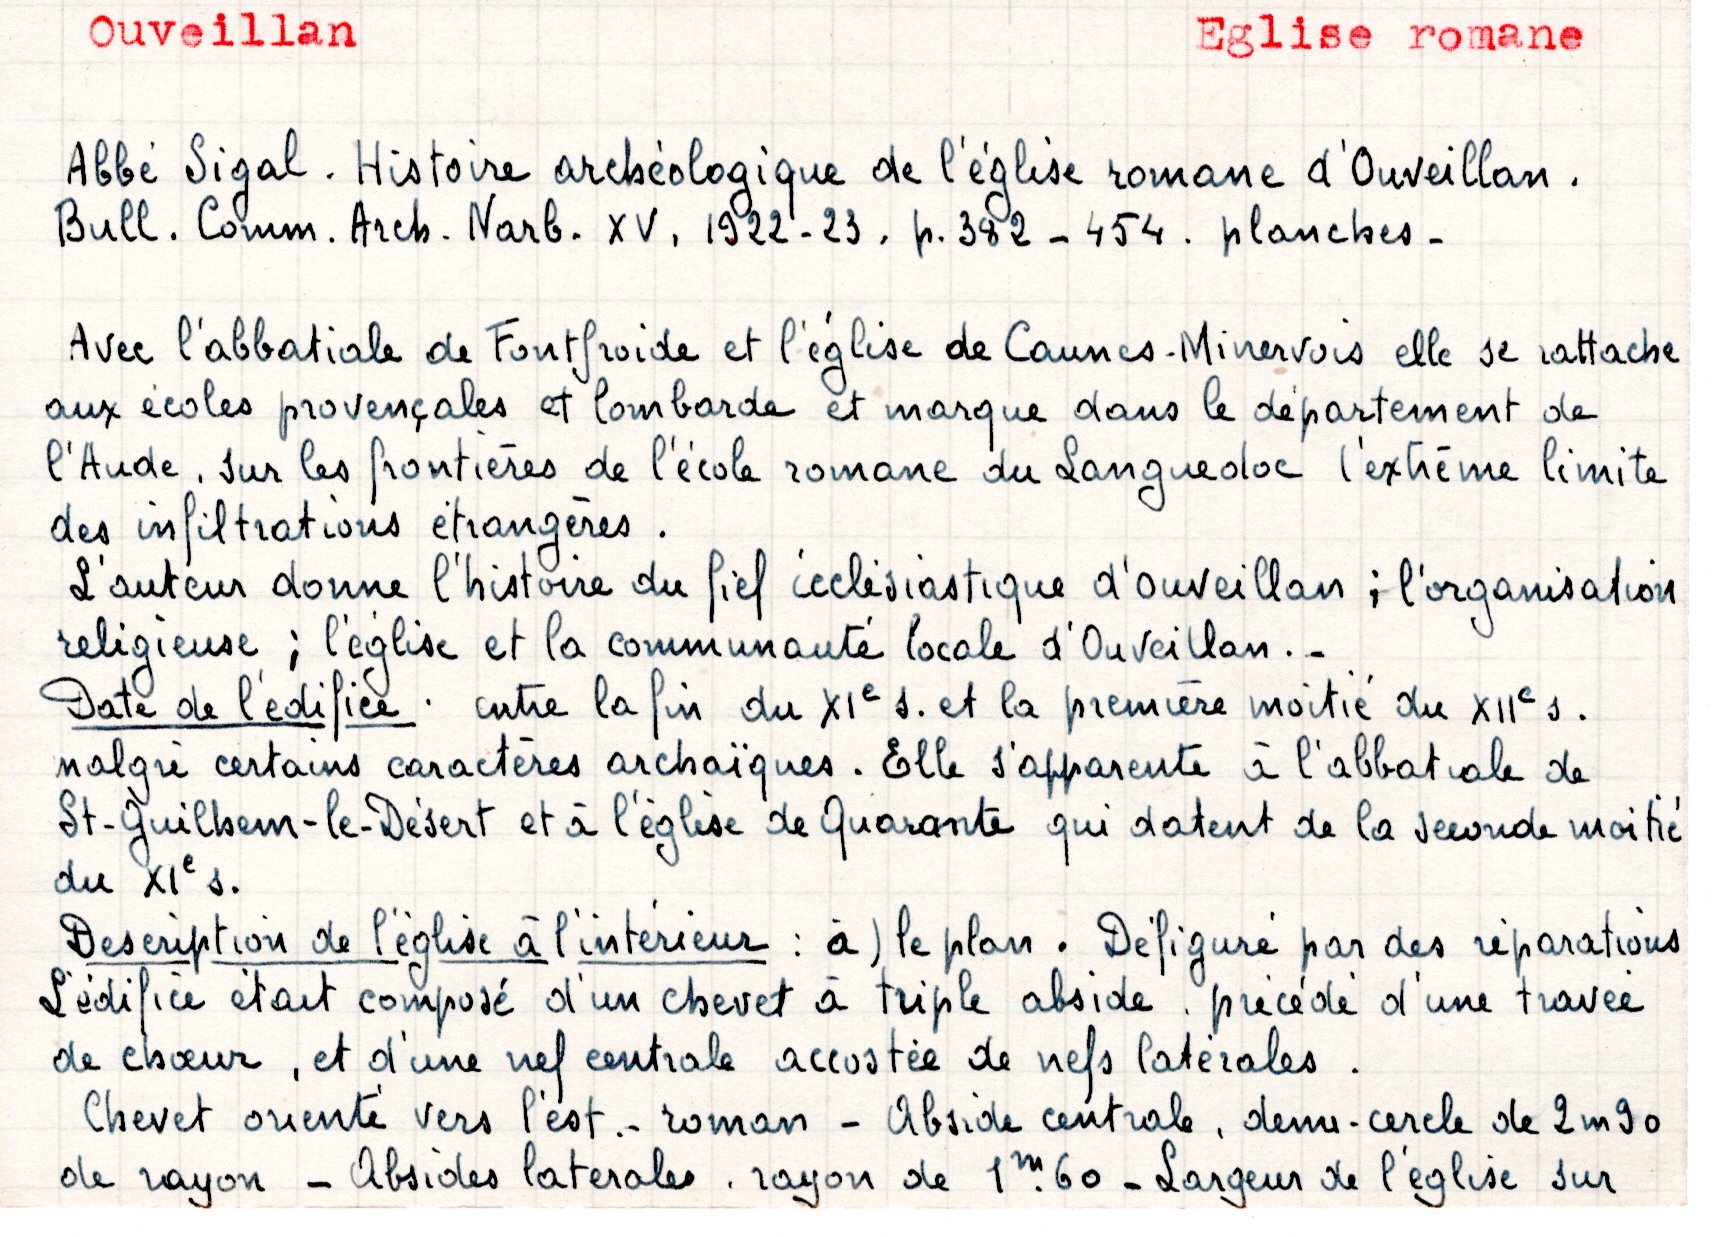 Ouveillan Eglise romane
Abbé Sigal. Histoire archéologique de l'église romane d'Ouveillan.
Bull. Comm. Arch. Narb. XV, 1922-23, p. 382-454. planches-
Avec l'abbatiale de Fontfroide et l'église de Caunes-Minervois elle se rattache
aux écoles provençales et lombarde et marque dans le département de
l'Aude, sur les frontières de l'école romane du Languedoc l'extrême limite
des infiltrations étrangères.
L'auteur donne l'histoire du fief écclésiastique d'Ouveillan ; l'organisation
religieuse ; l'église et la communauté locale d'Ouveillan.-
Date de l'édifice. entre la fin du XIe s. et la première moitié du XIIe s.
malgré certains caractères archaïques. Elle s'apparente à l'abbatiale de
St-Guilhem-le-Désert et à l'église de Quarante qui datent de la seconde moitié
du XIe s.
Description de l'église à l'intérieur : a) le plan. Défiguré par des réparations
L'édifice était composé d'un chevet à triple abside, précédé d'une travée
de chœur, et d'une nef centrale accostée de nefs latérales.
Chevet orienté vers l'est.- roman - Abside centrale, demi-cercle de 2m90
de rayon - Absides laterales, rayon de 1m.60 - Largeur de l'église sur